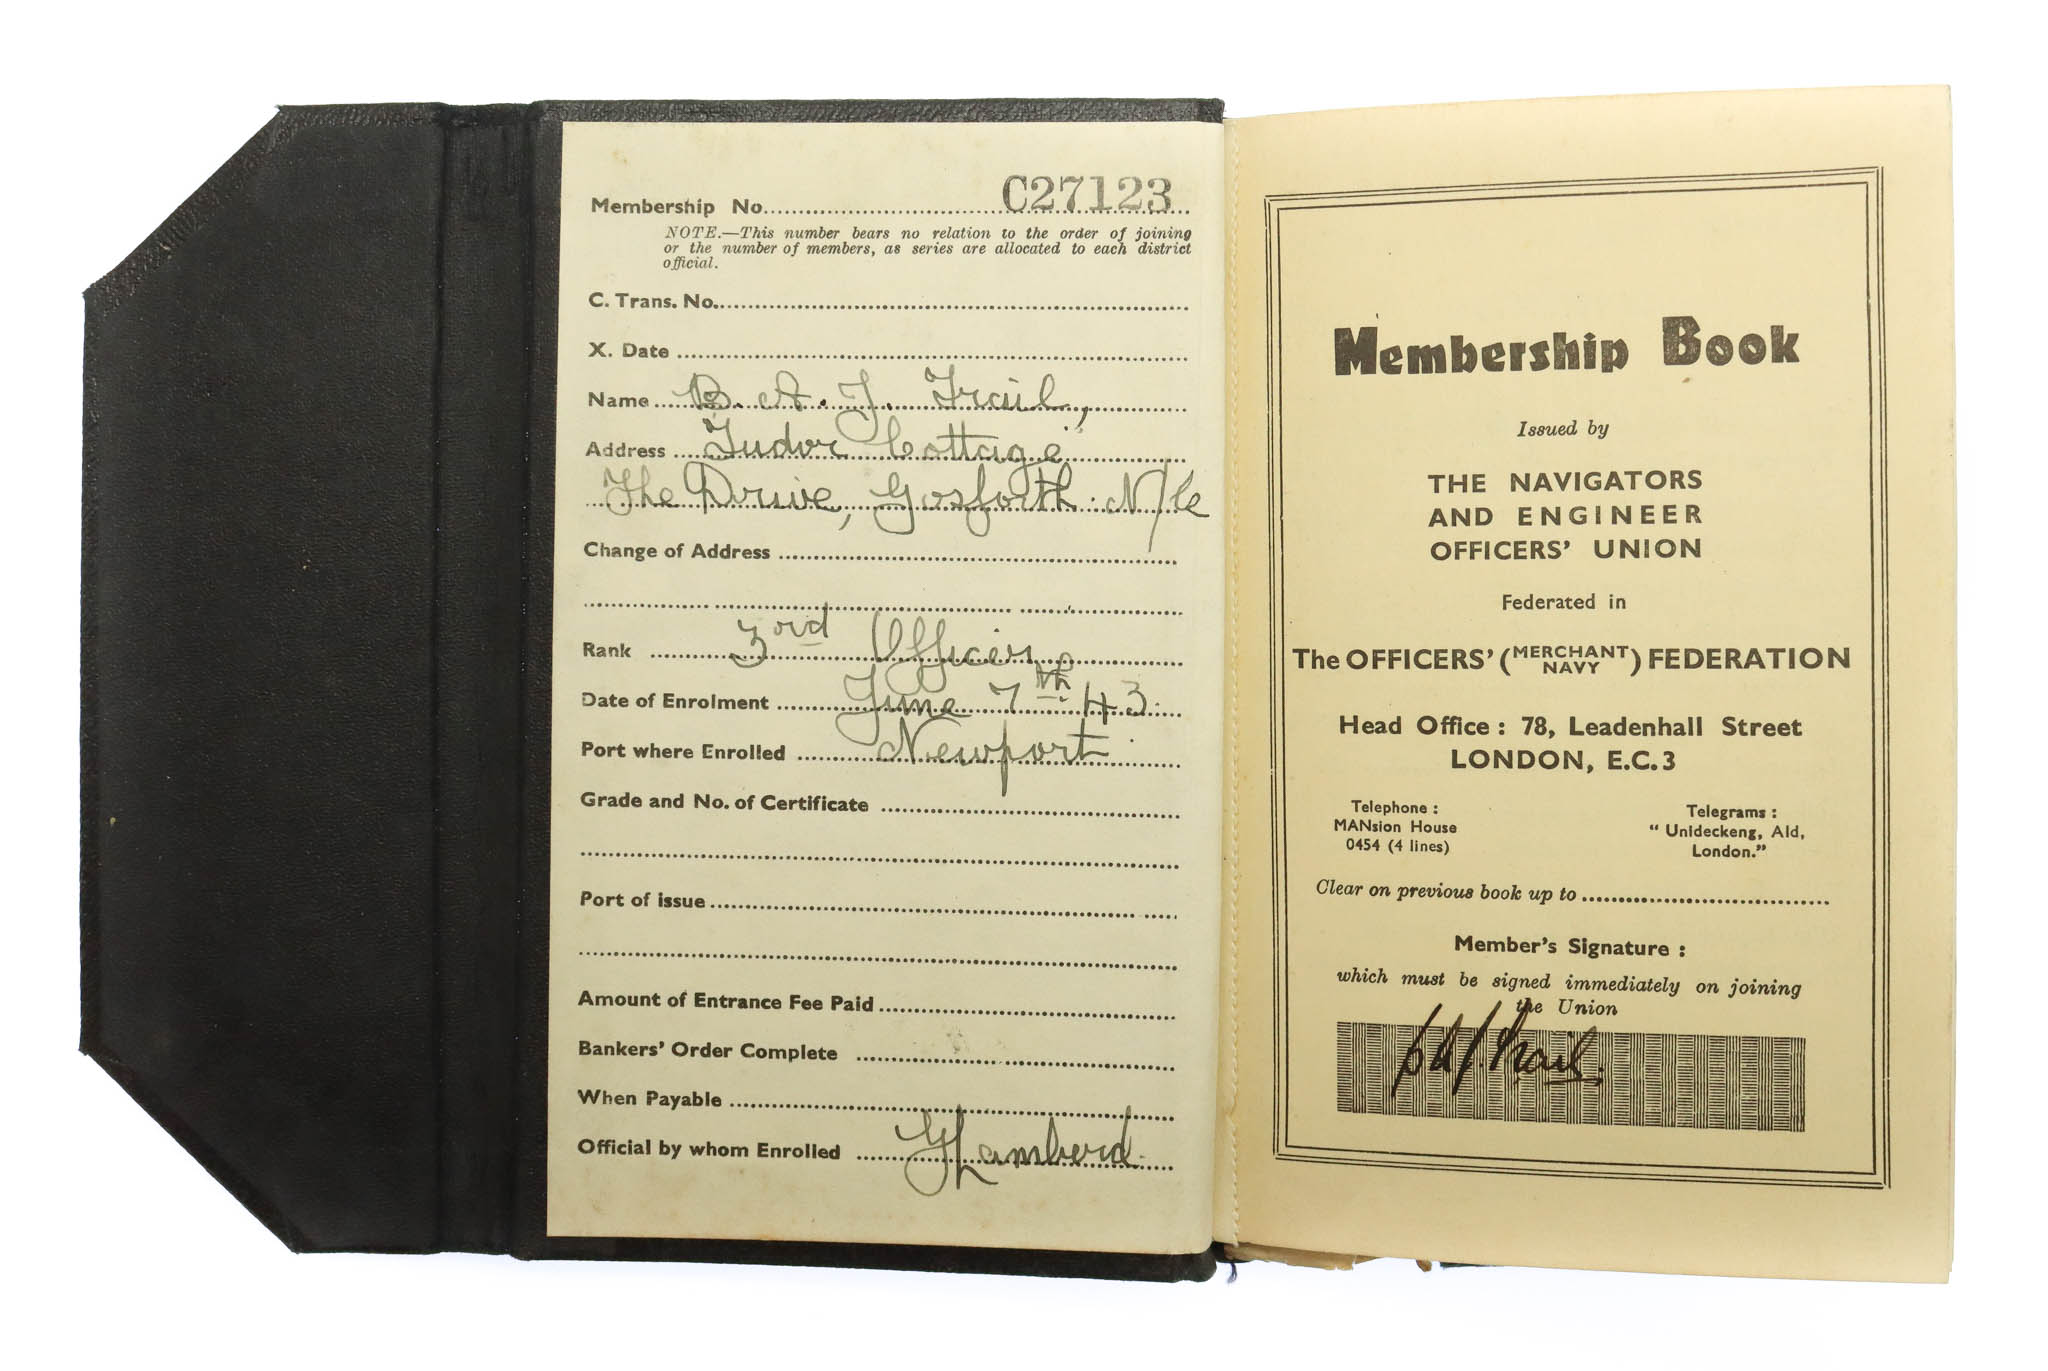 Membership No. C27123
NOTE.—This number bears no relation to the order of joining
or the number of members, as series are allocated to each district
official.
C. Trans. No.
X. Date
Name B. A. J. Trail,
Address "Tudor Cottage"
The Drive, Gosforth. N/c
Change of Address
Rank 3rd Officer
Date of Enrolment June 7th. 43.
Port where Enrolled Newport.
Grade and No. of Certificate
Port of issue
Amount of Entrance Fee Paid
Bankers' Order Complete
When Payable
Official by whom Enrolled
Membership Book
Issued by
THE NAVIGATORS
AND ENGINEER
OFFICERS' UNION
Federated in
The OFFICERS' (MERCHANT NAVY) FEDERATION
Head Office : 78, Leadenhall Street
LONDON, E.C.3
Telephone :
MANsion House
0454 (4 lines)
Telegrams :
" Unideckeng, Ald,
London."
Clear on previous book up to
Member's Signature :
which must be signed immediately on joining
the Union
B A J. Trail.